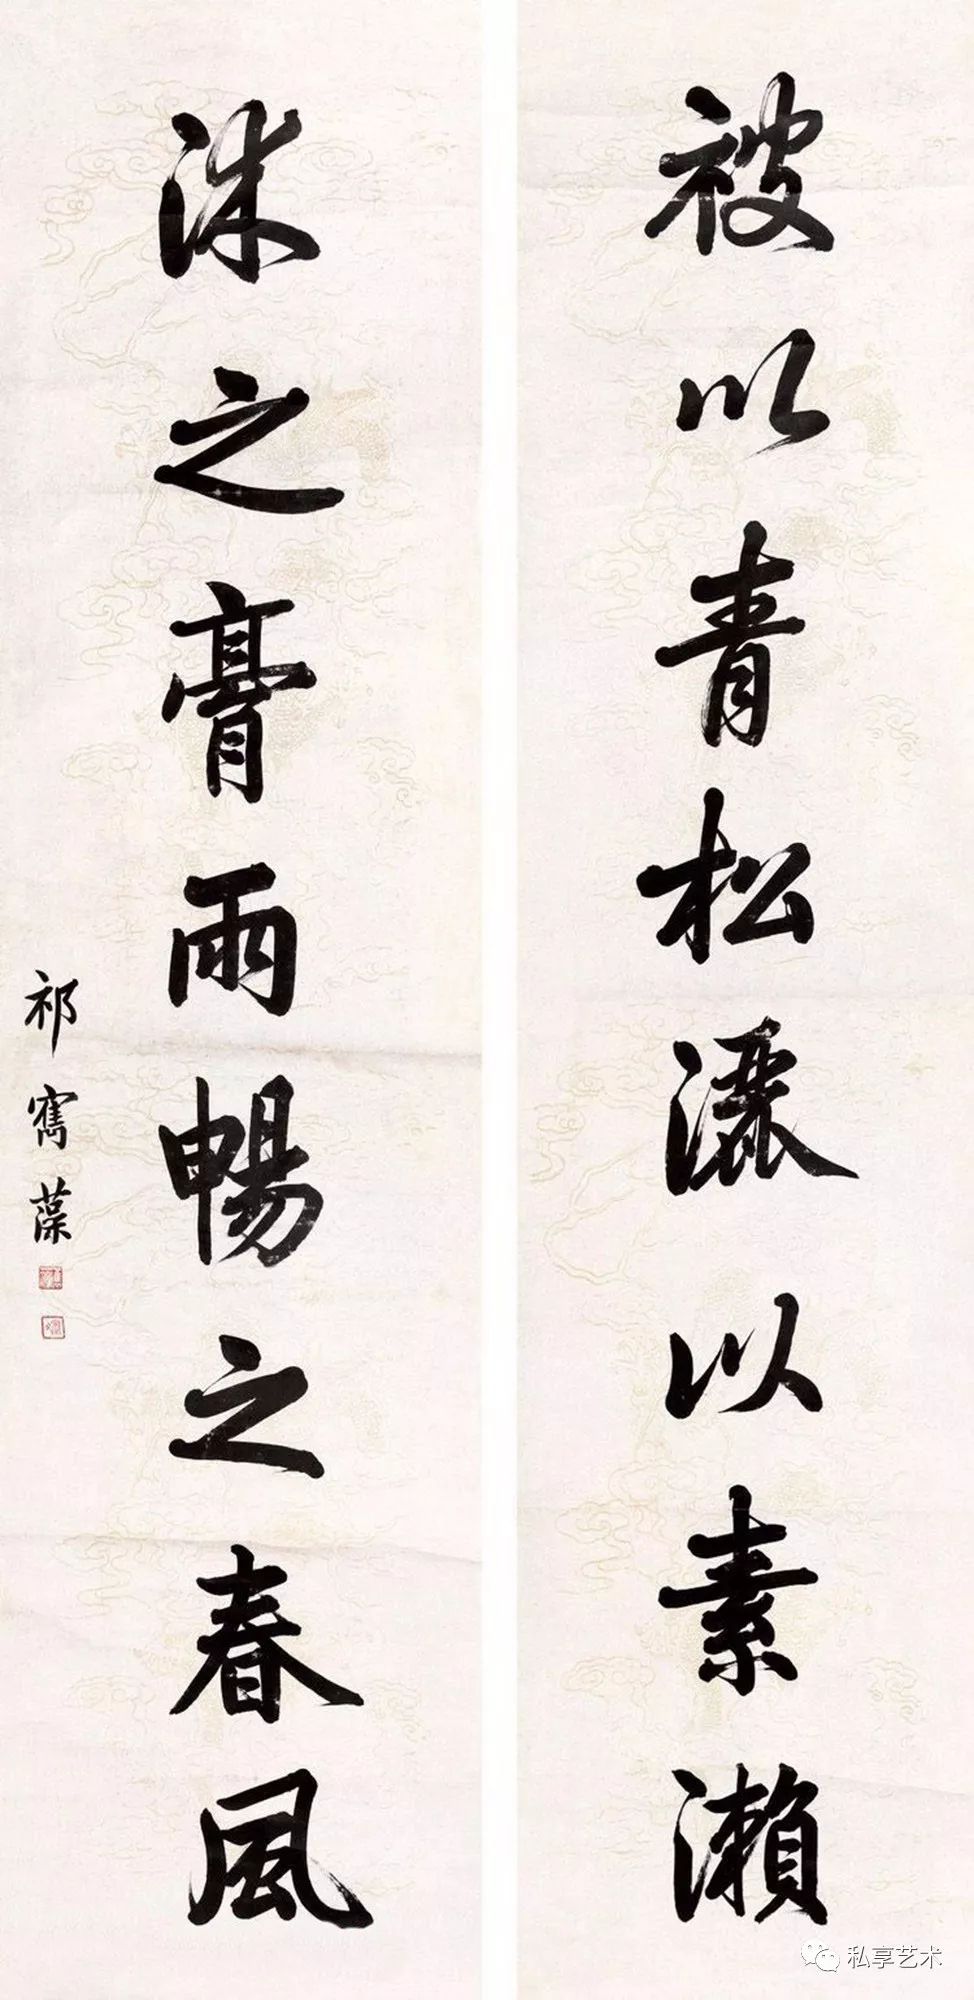 被以青松灑以素瀨
沐之膏雨暢之春風
祁寯藻
私享艺术